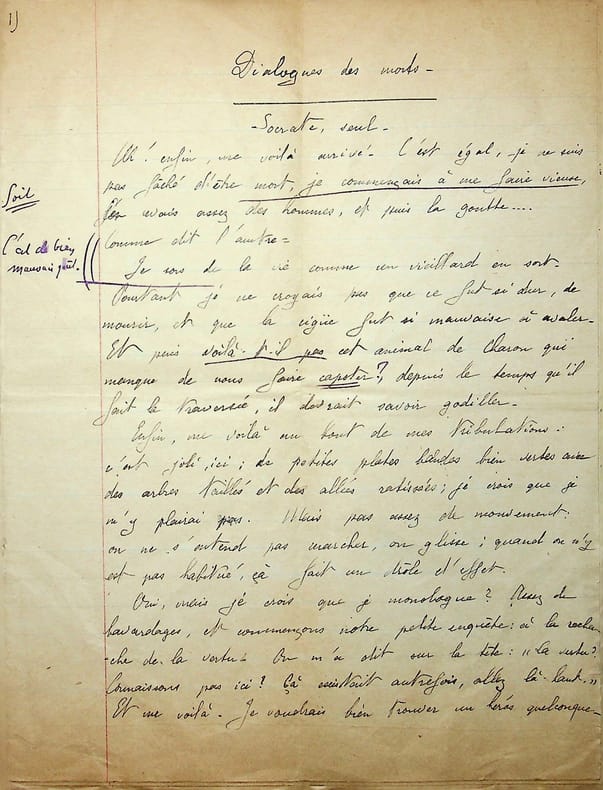 1)
Dialogues des morts -
- Socrate, seul -
Ah! enfin, me voilà arrivé - C'est égal, je ne suis
pas fâché d'être mort, je commençais à me faire vieux,
j'en avais assez des hommes, et puis la goutte....
Soit
Comme dit l'autre -
C'est de bien
mauvais goût.
Je sors de la vie comme un vieillard en sort -
Pourtant je ne croyais pas que ce fut si dur, de
mourir, et que la cigüe fut si mauvaise à avaler -
Et puis voilà-t-il pas cet animal de Charon qui
manque de nous faire capoter?, depuis le temps qu'il
fait la traversée, il devrait savoir godiller -
Enfin, me voilà au bout de mes tribulations :
c'est joli, ici ; de petites plates bandes bien vertes avec
des arbres taillés et des allées ratissées ; je crois que je
m'y plairai pas. Mais pas assez de mouvement :
on ne s'entend pas marcher, on glisse ; quand on n'y
est pas habitué, çà fait un drôle d'effet.
Oui, mais je crois que je monologue? Assez de
bavardages, et commençons notre petite enquête : à la recher-
-che de la vertu - On m'a dit sur la terre : "la vertu?
Connaissons pas ici! Çà existait autrefois, allez là-haut."
Et me voilà. Je voudrais bien trouver un héros quelconque -